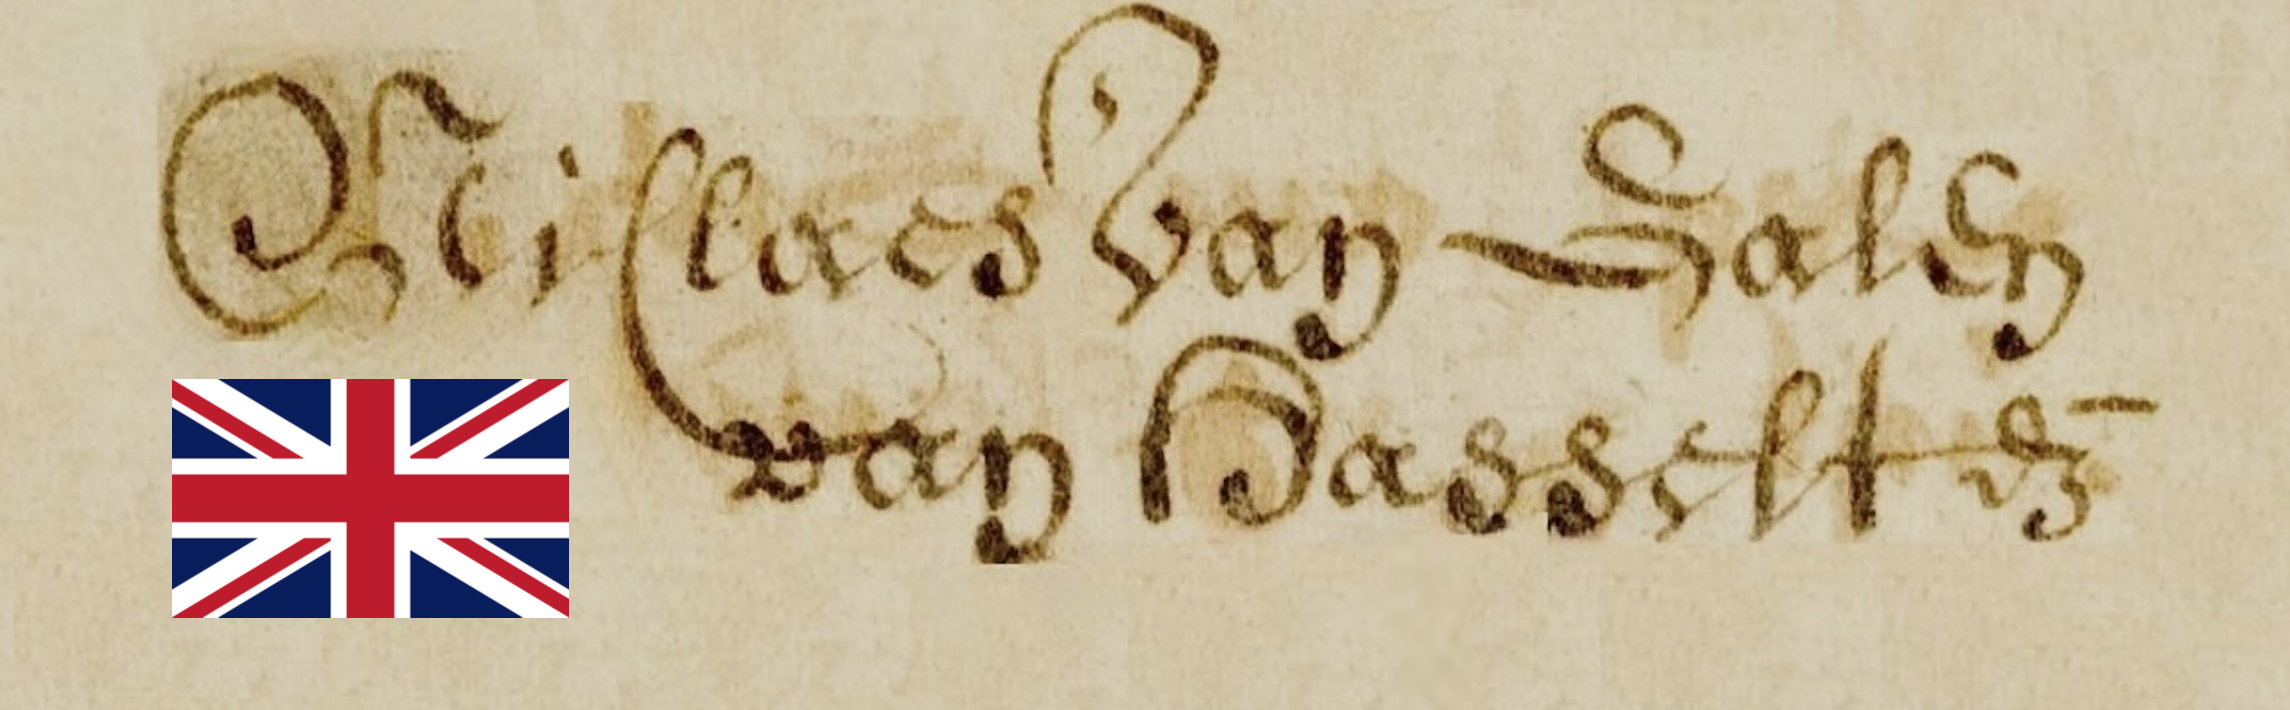 Nicllaes van Salen
van Hasselt